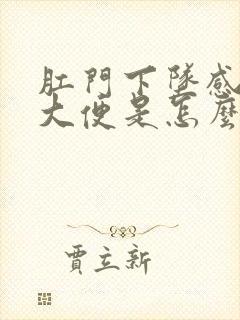 肛門下墜感
大便是怎麼
賈立新